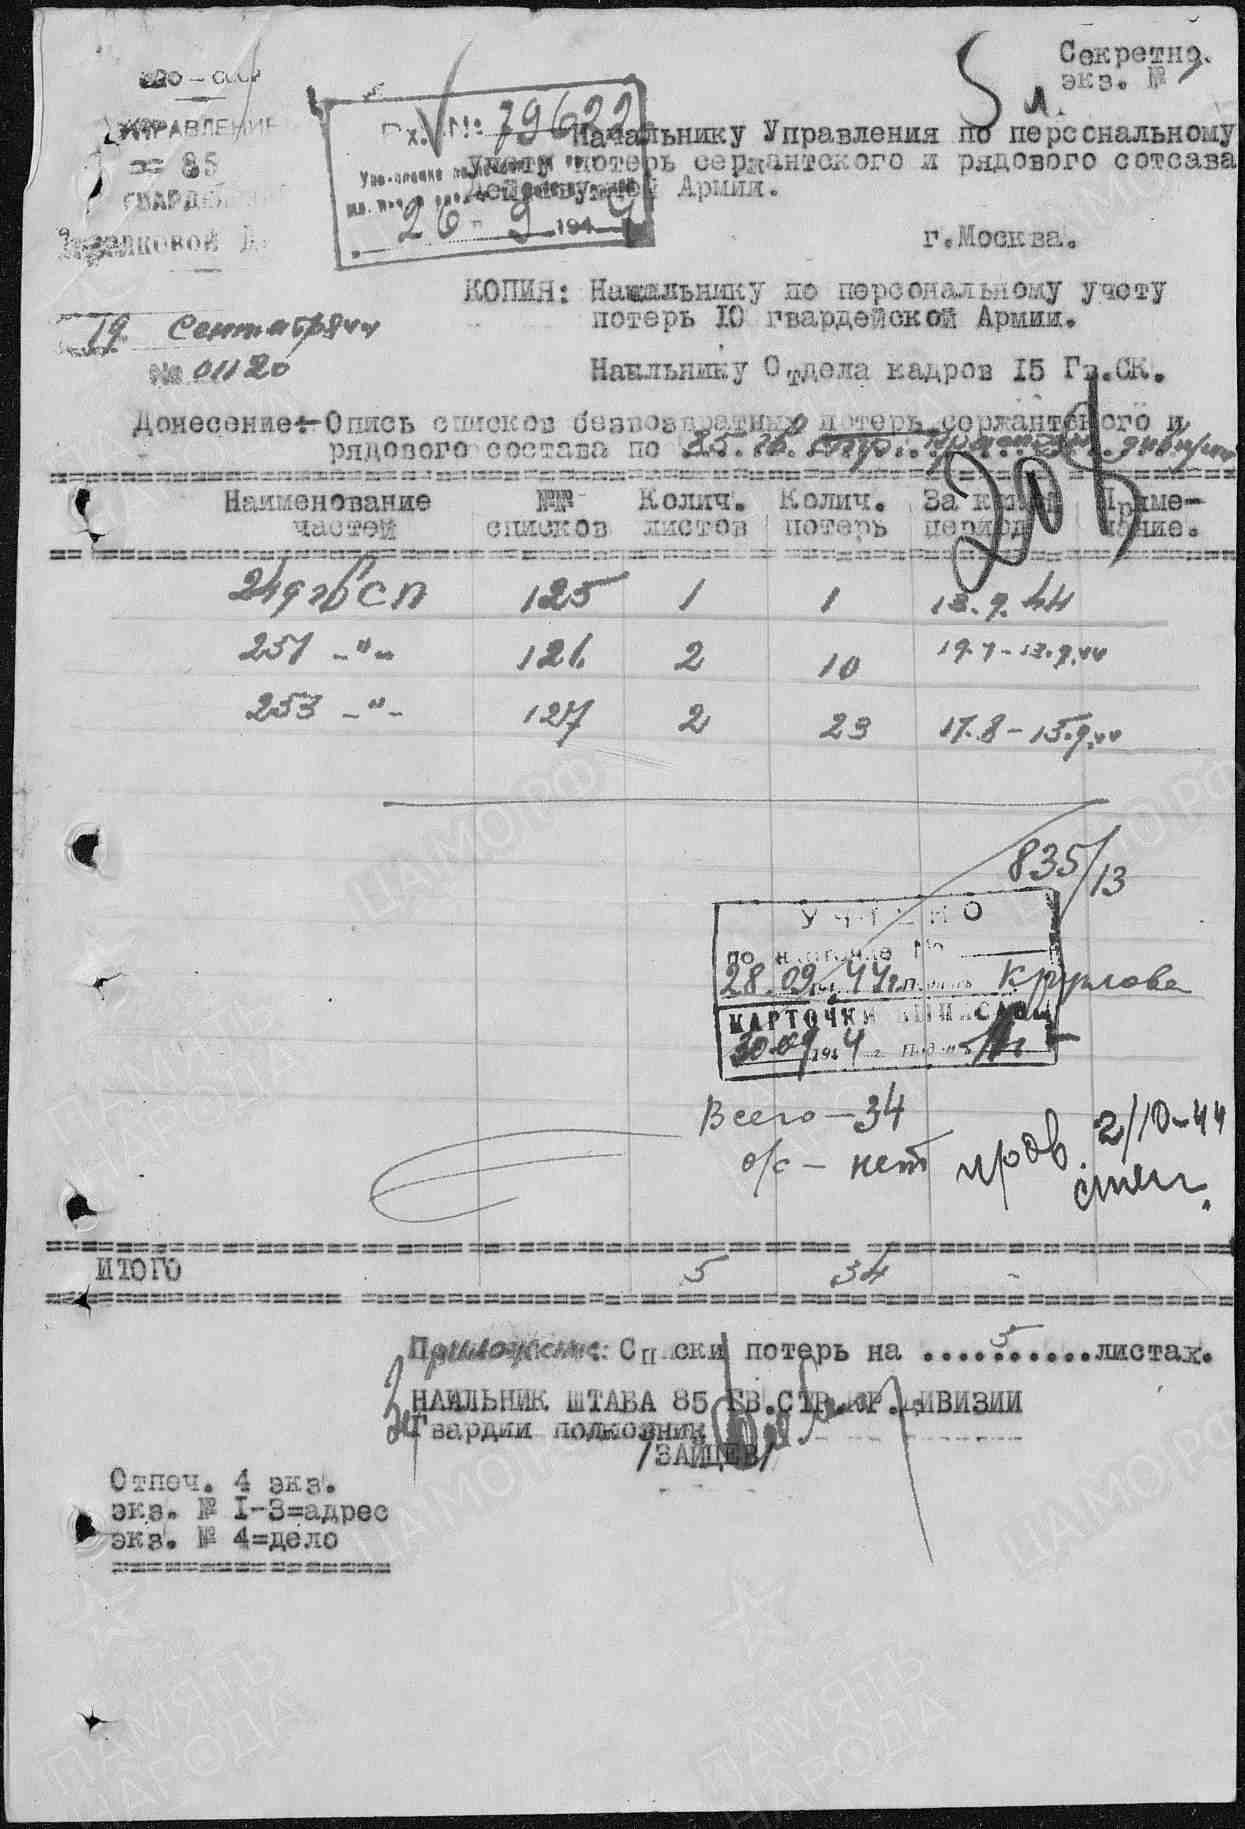 Секретно.
экз. №
НКО — СССР
УПРАВЛЕНИЕ
85
ГВАРДЕЙСКОЙ
Стрелковой
Вх. № 79622
26 - 9 1944
Начальнику Управления по персональному
учету потерь сержантского и рядового сотсава
Действующей Армии.
г.Москва.
КОПИЯ: Начальнику по персональному учету
потерь 10 гвардейской Армии.
19 Сентября 44
№ 01120
Наыльнику Отдела кадров 15 Гв.СК.
Донесение:-Опись списков безвозвратных потерь сержантского и
рядового состава по 85. гв. стр. дивизии
Наименование частей №№ списков Колич. листов Колич. потерь За какой период Приме-чание.
249 гв СП 125 1 1 13.9.44
251 -"- 126 2 10 19.7-13.9.44
253 -"- 127 2 23 17.8-15.9.44
835/13
УЧТЕНО
по картотеке №
28.09.44г. Подпись Круглова
КАРТОЧКИ
30.09 1944 г. Подпись
Всего - 34
о/с - нет
пров. 2/10-44
ИТОГО 5 34 -
Приложение: Списки потерь на ....5......листах.
НАЧАЛЬНИК ШТАБА 85 ГВ.СТР.КР.ДИВИЗИИ
Гвардии полковник
/ЗАЙЦЕВ/
Отпеч. 4 экз.
экз. № I-3=адрес
экз. № 4=дело
ПАМЯТЬ НАРОДА
ЦАМО.РФ